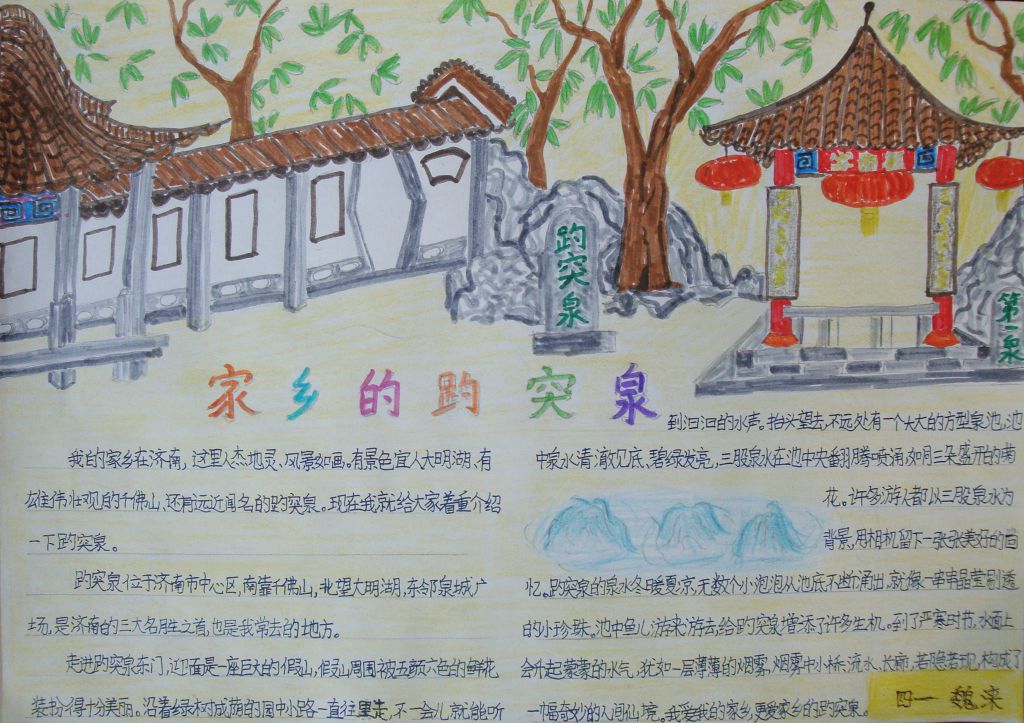 趵突泉
第一泉
家乡的趵突泉
我的家乡在济南,这里人杰地灵、风景如画。有景色宜人大明湖、有
雄伟壮观的千佛山、还有远近闻名的趵突泉。现在我就给大家着重介绍
一下趵突泉。
趵突泉位于济南市中心区,南靠千佛山,北望大明湖,东邻泉城广
场,是济南的三大名胜之首,也是我常去的地方。
走进趵突泉东门,迎面是一座巨大的假山,假山周围被五颜六色的鲜花
装扮得十分美丽。沿着绿树成荫的园中小路一直往里走,不一会儿就能听
到汩汩的水声。抬头望去,不远处有一个大大的方型泉池,池
中泉水清澈见底,碧绿发亮,三股泉水在池中央翻腾喷涌,如同三朵盛开的菊
花。许多游人都以三股泉水为
背景,用相机留下一张张美好的回
忆。趵突泉的泉水冬暖夏凉,无数个小泡泡从池底不断涌出,就像一串串晶莹剔透
的小珍珠。池中鱼儿游来游去,给趵突泉增添了许多生机。到了严寒时节,水面上
会升起蒙蒙的水气,犹如一层薄薄的烟雾,烟雾中小桥、流水、长廊,若隐若现,构成了
一幅奇妙的人间仙境。我爱我的家乡,更爱家乡的趵突泉。
四一 魏来